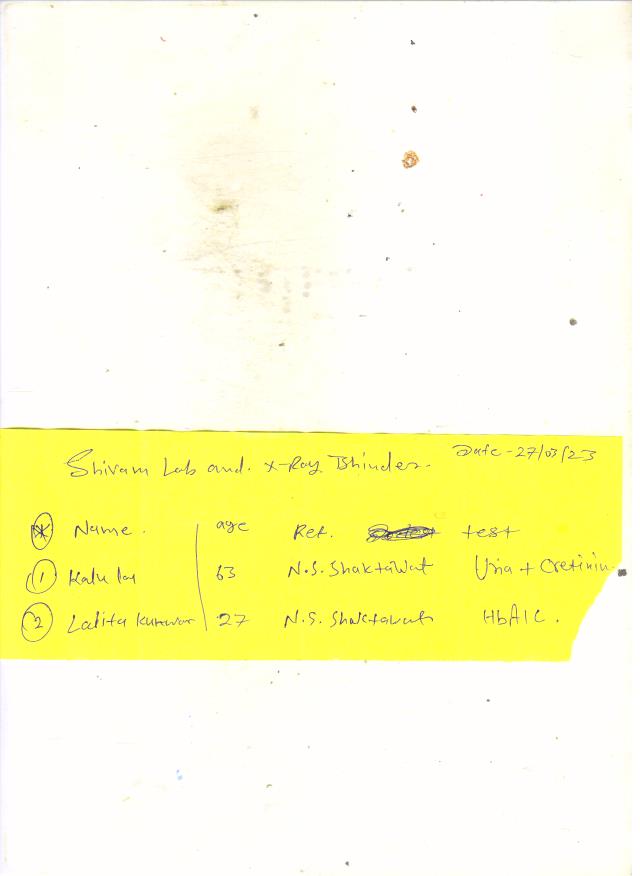 Shivam Lab and. X-Ray Bhinder.
Date - 27/03/23
* Name. age Ref. test
1 Kalu lal 63 N.S. Shaktawat Uria + Cretinin
2 Lalita Kunwar 27 N.S. Shaktawat HbA1C.